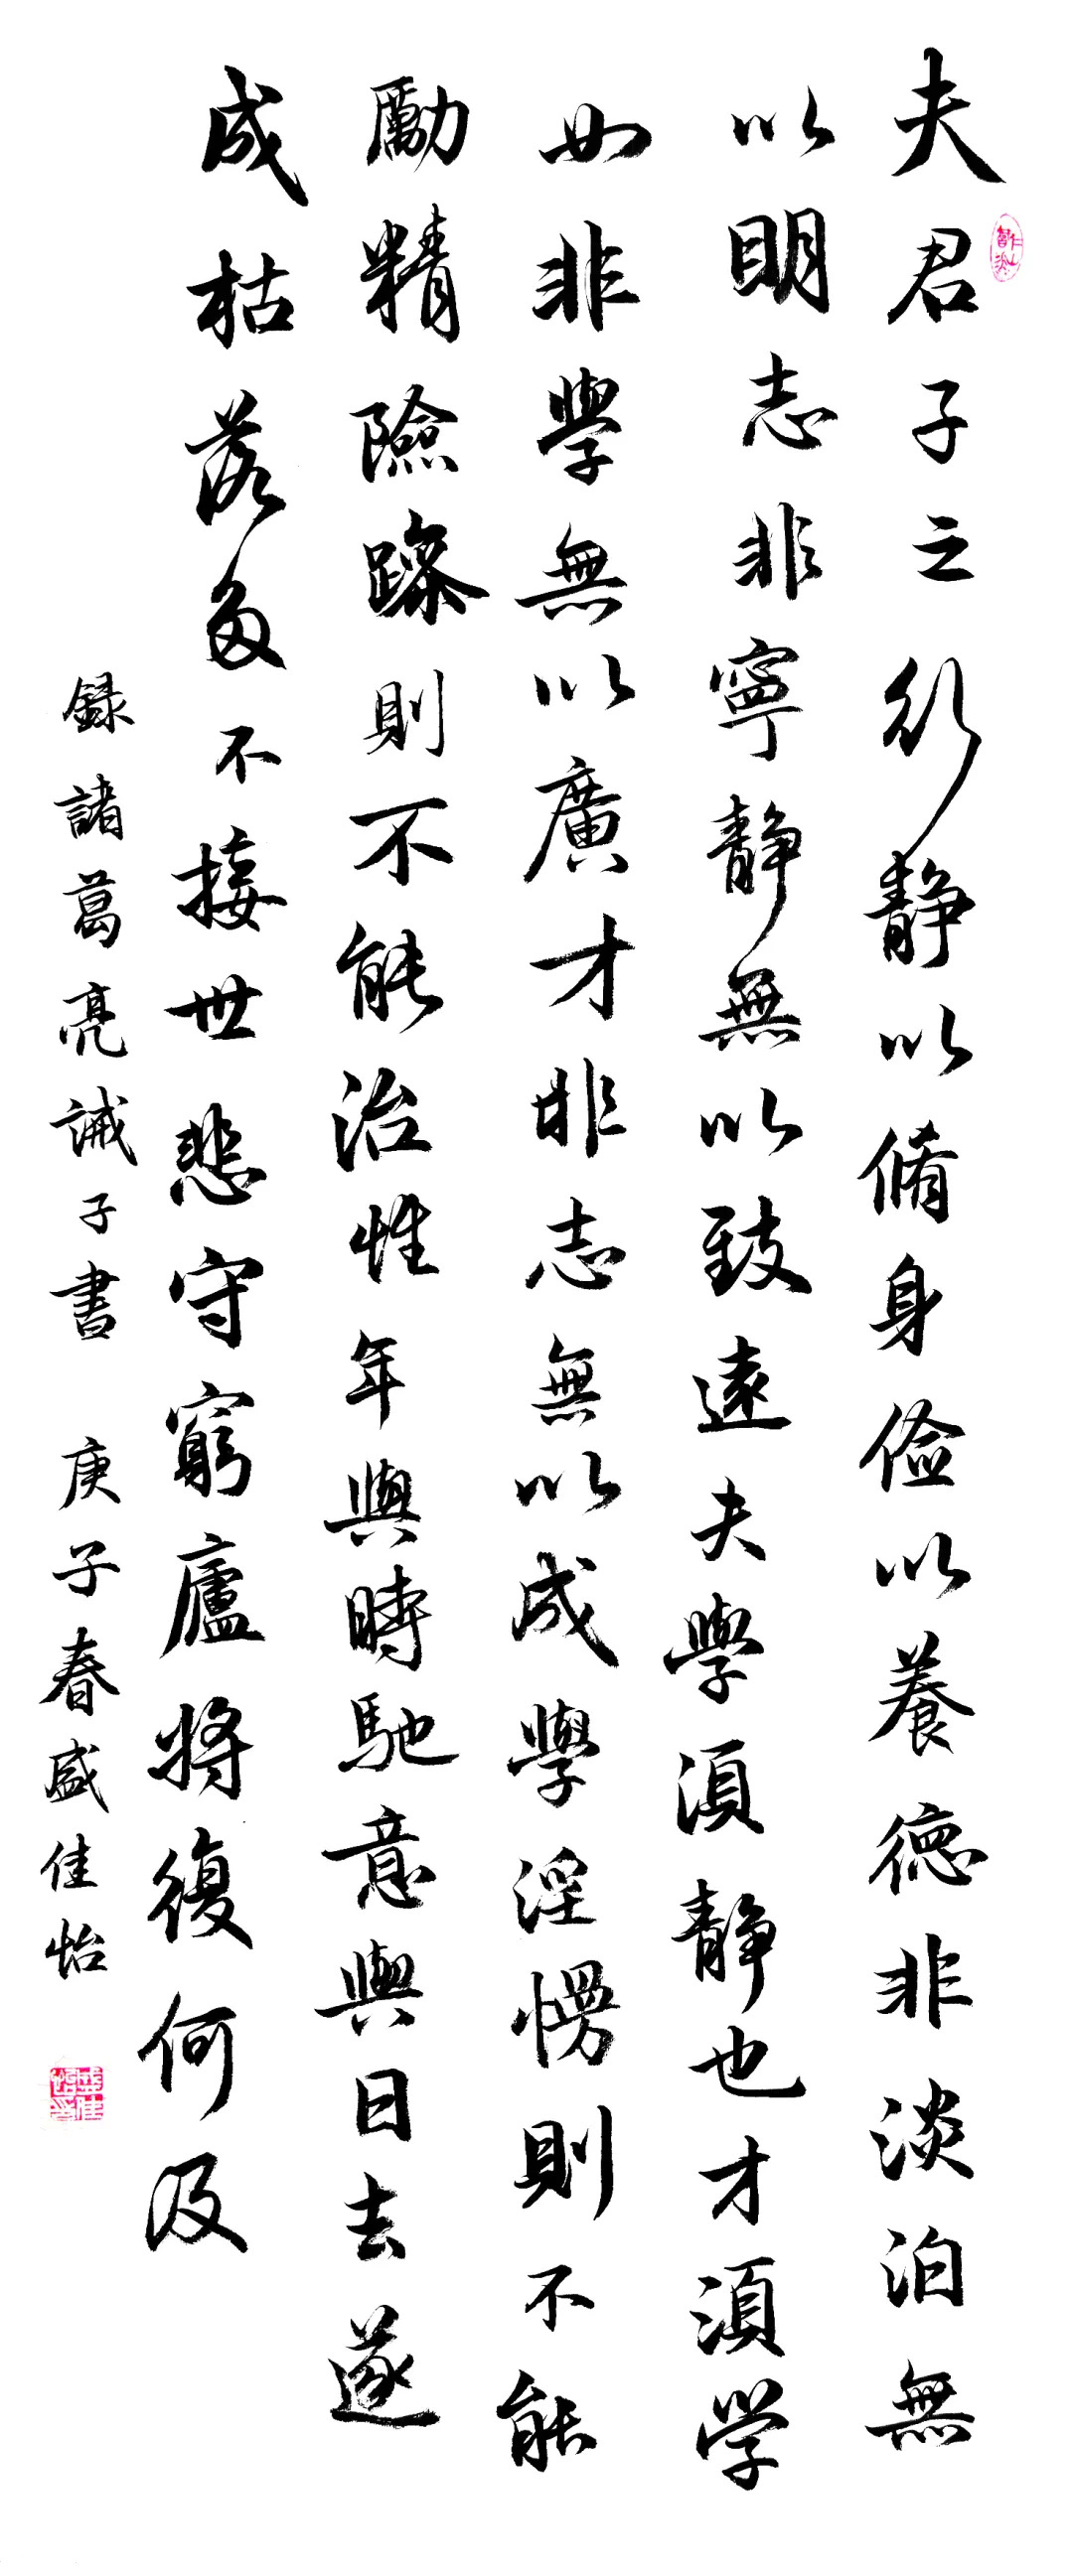 夫君子之行静以脩身俭以養德非淡泊無
以明志非寧静無以致遠夫學須静也才須学
也非學無以廣才非志無以成學淫慢則不能
勵精險躁則不能治性年與時馳意與日去遂
成枯落多不接世悲守窮廬將復何及
録諸葛亮誡子書 庚子春盛佳怡
盛佳怡印